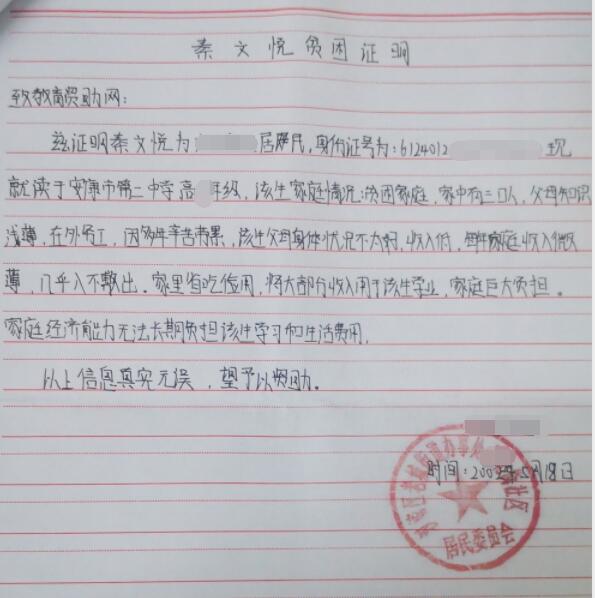 秦文悦贫困证明
致教育资助网：
兹证明秦文悦为 居民，身份证号为：6124012 现
就读于安康市第二中学高 年级，该生家庭情况：贫困家庭，家中有三口人，父母知识
浅薄，在外务工，因多年辛苦劳累，该生父母身体状况不太好，收入低，每年家庭收入微
薄，几乎入不敷出。家里省吃俭用，将大部分收入用于该生学业，家庭巨大负担。
家庭经济能力无法长期负担该生学习和生活费用。
以上信息真实无误，望予以资助。
时间：20 年5月18日
街道办事处 社区
居民委员会